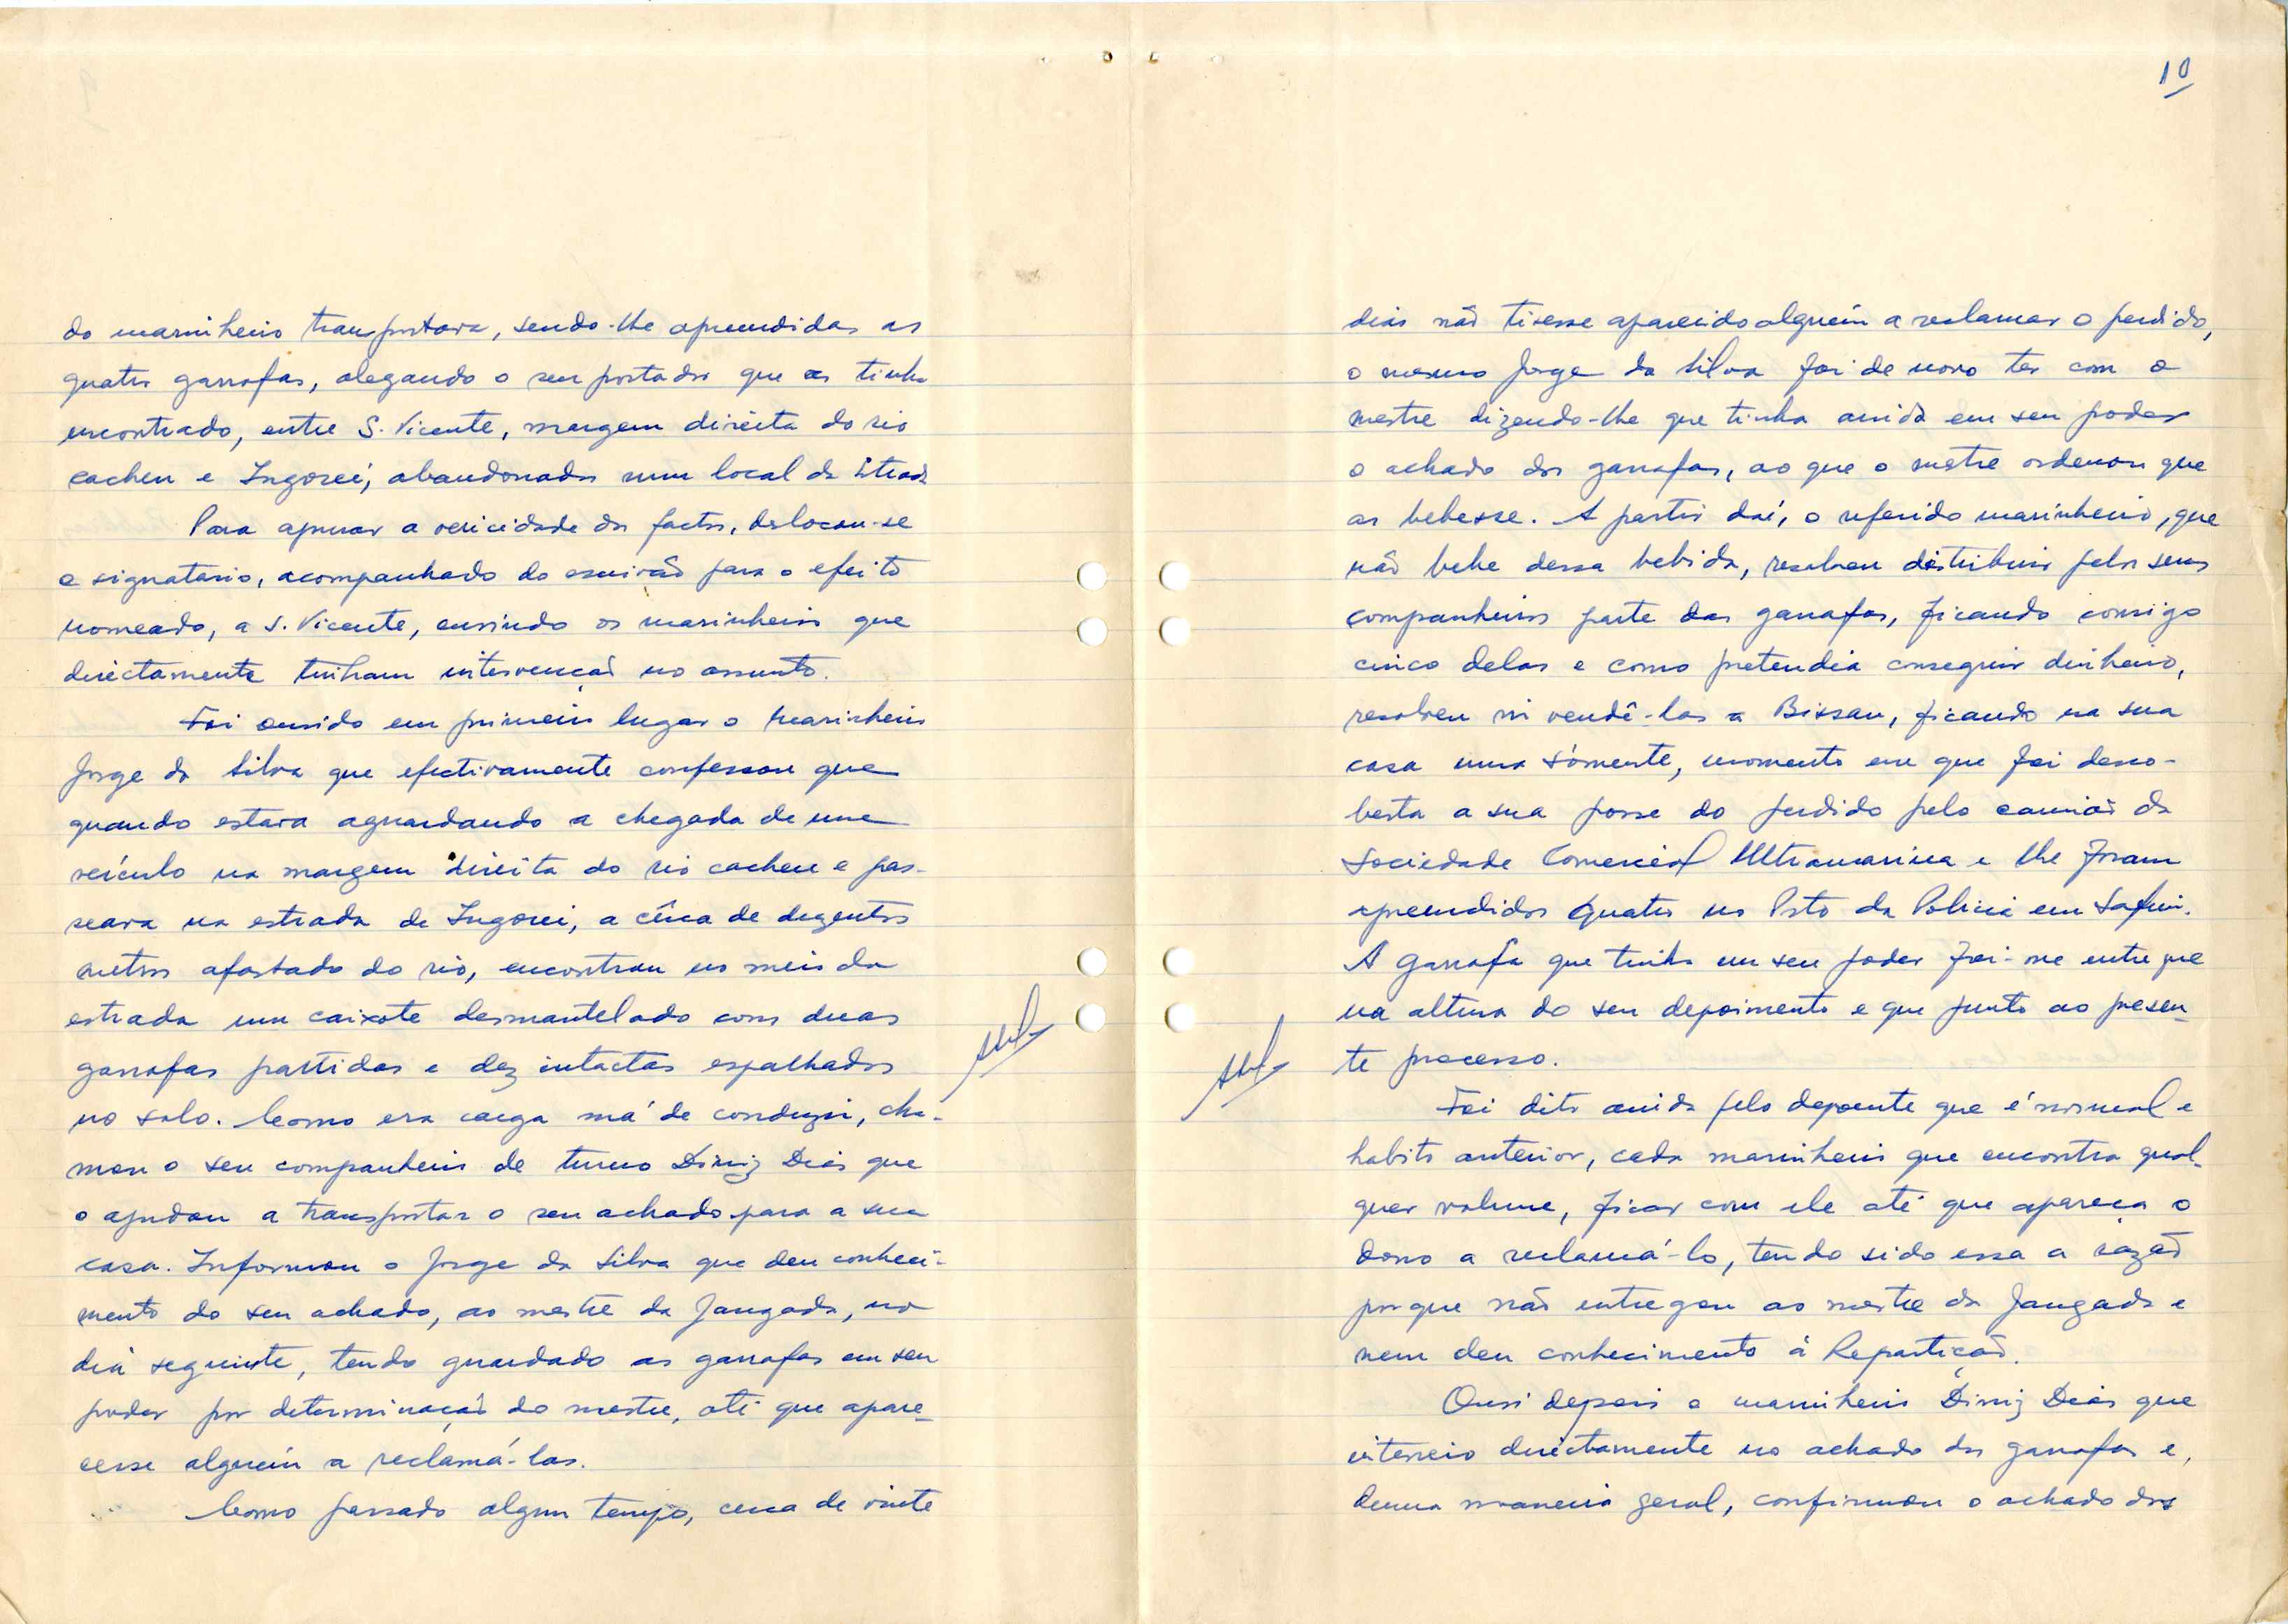 do marinheiro transportava, sendo-lhe apreendidas as
quatro garrafas, alegando o seu portador que as tinha
encontrado, entre S. Vicente, margem direita do rio
cacheu e Ingoreí, abandonadas num local da estrada
Para apurar a vericidade dos factos, deslocou-se
o signatário, acompanhado do escrivão para o efeito
nomeado, a S. Vicente, ouvindo os marinheiros que
directamente tinham intervenção no assunto.
Foi ouvido em primeiro lugar o marinheiro
Jorge da Silva que efectivamente confessou que
quando estava aguardando a chegada de um
veículo na margem direita do rio cacheu e pas-
seava na estrada de Ingorei, a cêrca de duzentos
metros afastado do rio, encontrou no meio da
estrada um caixote desmantelado com duas
garrafas partidas e dez intactas espalhadas
no solo. Como era carga má de conduzir, cha-
mou o seu companheiro de turno Diniz Dias que
o ajudou a transportar o seu achado para a sua
casa. Informou o Jorge da Silva que deu conheci-
mento do seu achado, ao mestre da Jangada, no
dia seguinte, tendo guardado as garrafas em seu
poder por determinação do mestre, até que apare-
cesse alguém a reclamá-las.
Como passado algum tempo, cerca de vinte
10
dias não tivesse aparecido alguém a reclamar o perdido,
o mesmo Jorge da Silva foi de novo ter com o
mestre dizendo-lhe que tinha ainda em seu poder
o achado das garrafas, ao que o mestre ordenou que
as bebesse. A partir daí, o referido marinheiro, que
não bebe dessa bebida, resolveu distribuir pelos seus
companheiros parte das garrafas, ficando consigo
cinco delas e como pretendia conseguir dinheiro,
resolveu ir vendê-las a Bissau, ficando na sua
casa uma sómente, momento em que foi desco-
berta a sua posse do perdido pelo camião da
Sociedade Comercial Ultramarina e lhe foram
apreendidos quatro no Posto da Policia em Safim.
A garrafa que tinha em seu poder foi-me entregue
na altura do seu depoimento e que junto ao presen-
te processo.
Foi dito ainda pelo depoente que é normal e
habito anterior, cada marinheiro que encontra qual-
quer volume, ficar com ele até que apareça o
dono a reclamá-lo, tendo sido essa a razão
porque não entregou ao mestre da Jangada e
nem deu conhecimento á Repartição.
Ouvi depois o marinheiro Diniz Dias que
interveio directamente no achado das garrafas e,
duma maneira geral, confirmou o achado das